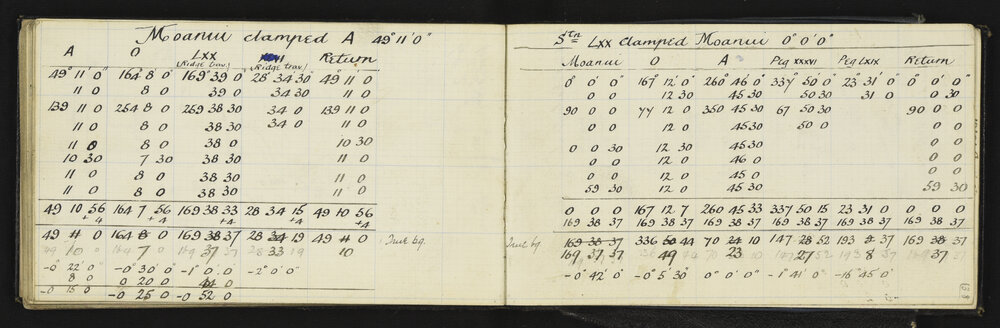 Moanui clamped A 49° 11' 0"
A O LXX Return
(Ridge trav.) (Ridge trav.)
49° 11 0" 164° 8 0" 169° 39 0 28° 34 30 49° 11 0
11 0 8 0 39 0 34 30 11 0
139 11 0 254 8 0 259 38 30 34 0 139 11 0
11 0 8 0 38 30 34 0 11 0
11 0 8 0 38 0 10 30
10 30 7 30 38 0 11 0
11 0 8 0 38 30 11 0
11 0 8 0 38 30 11 0
49 10 56 164 7 56 169 38 33 28 34 15 49 10 56
+4 +4 +4 +4
49 11 0 164 8 0 169 38 37 28 34 19 49 11 0 True bg.
49 10 0 164 7 0 169 37 37 28 33 19 10
-0° 22' 0" -0° 30' 0 -1° 0 0 -2° 0' 0"
8 0 0 20 0
-0 15 0 -0 25 0 -0 52 0
Stn LXX clamped Moanui 0° 0' 0"
Moanui O A Peg XXXVI Peg LXIX Return
0° 0' 0" 167° 12' 0 260° 46 0 337° 50 0 23° 31 0 0° 0' 0"
0 0 12 30 45 30 50 30 31 0 0 30
90 0 0 77 12 0 350 45 30 67 50 30 90 0 0
0 0 12 0 45 30 50 0 0 0
0 0 30 12 30 45 30 0 0
0 0 12 0 46 0 0 0
0 0 12 0 45 0 0 0
59 30 12 0 45 30 59 30
0 0 0 167 12 7 260 45 33 337 50 15 23 31 0 0 0 0
169 38 37 169 38 37 169 38 37 169 38 37 169 38 37 169 38 37
True bg 169 38 37 336 50 44 70 24 10 147 28 52 193 8 37 169 38 37
169 37 37 49 23 27 8 37
-0° 42' 0 -0° 5' 30 0° 0' 0" -1° 41' 0 -16° 45 0